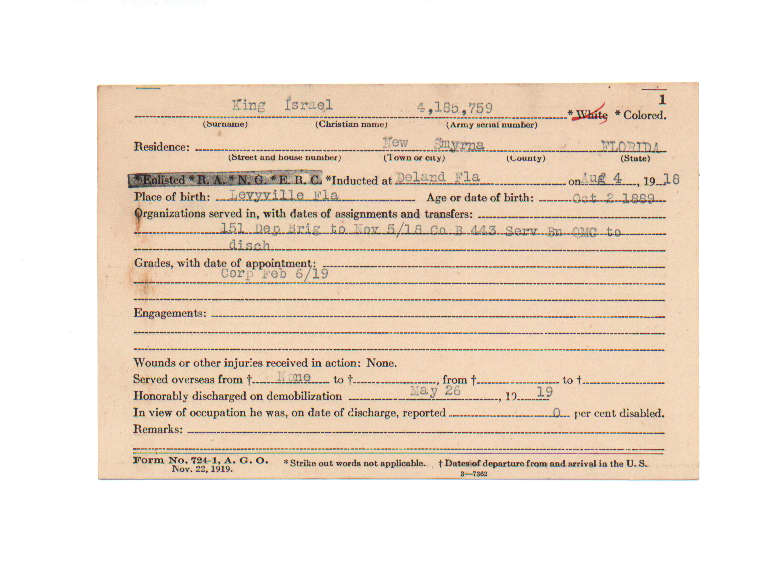 1
King Israel 4,185,759 * White * Colored.
(Surname) (Christian name) (Army serial number)
Residence: New Smyrna FLORIDA
(Street and house number) (Town or city) (County) (State)
*Enlisted *R. A. *N. G. *E. R. C. *Inducted at Deland Fla on Aug 4, 1918
Place of birth: Levyville Fla Age or date of birth: Oct 2 1889
Organizations served in, with dates of assignments and transfers:
151 Dep Brig to Nov 5/18 Co B 443 Serv Bn QMC to
disch
Grades, with date of appointment:
Corp Feb 6/19
Engagements:
Wounds or other injuries received in action: None.
Served overseas from † None to †, from † to †
Honorably discharged on demobilization May 26, 19 19
In view of occupation he was, on date of discharge, reported 0 per cent disabled.
Remarks:
Form No. 724-1, A. G. O. *Strike out words not applicable. † Dates of departure from and arrival in the U. S.
Nov. 22, 1919. 3—7362